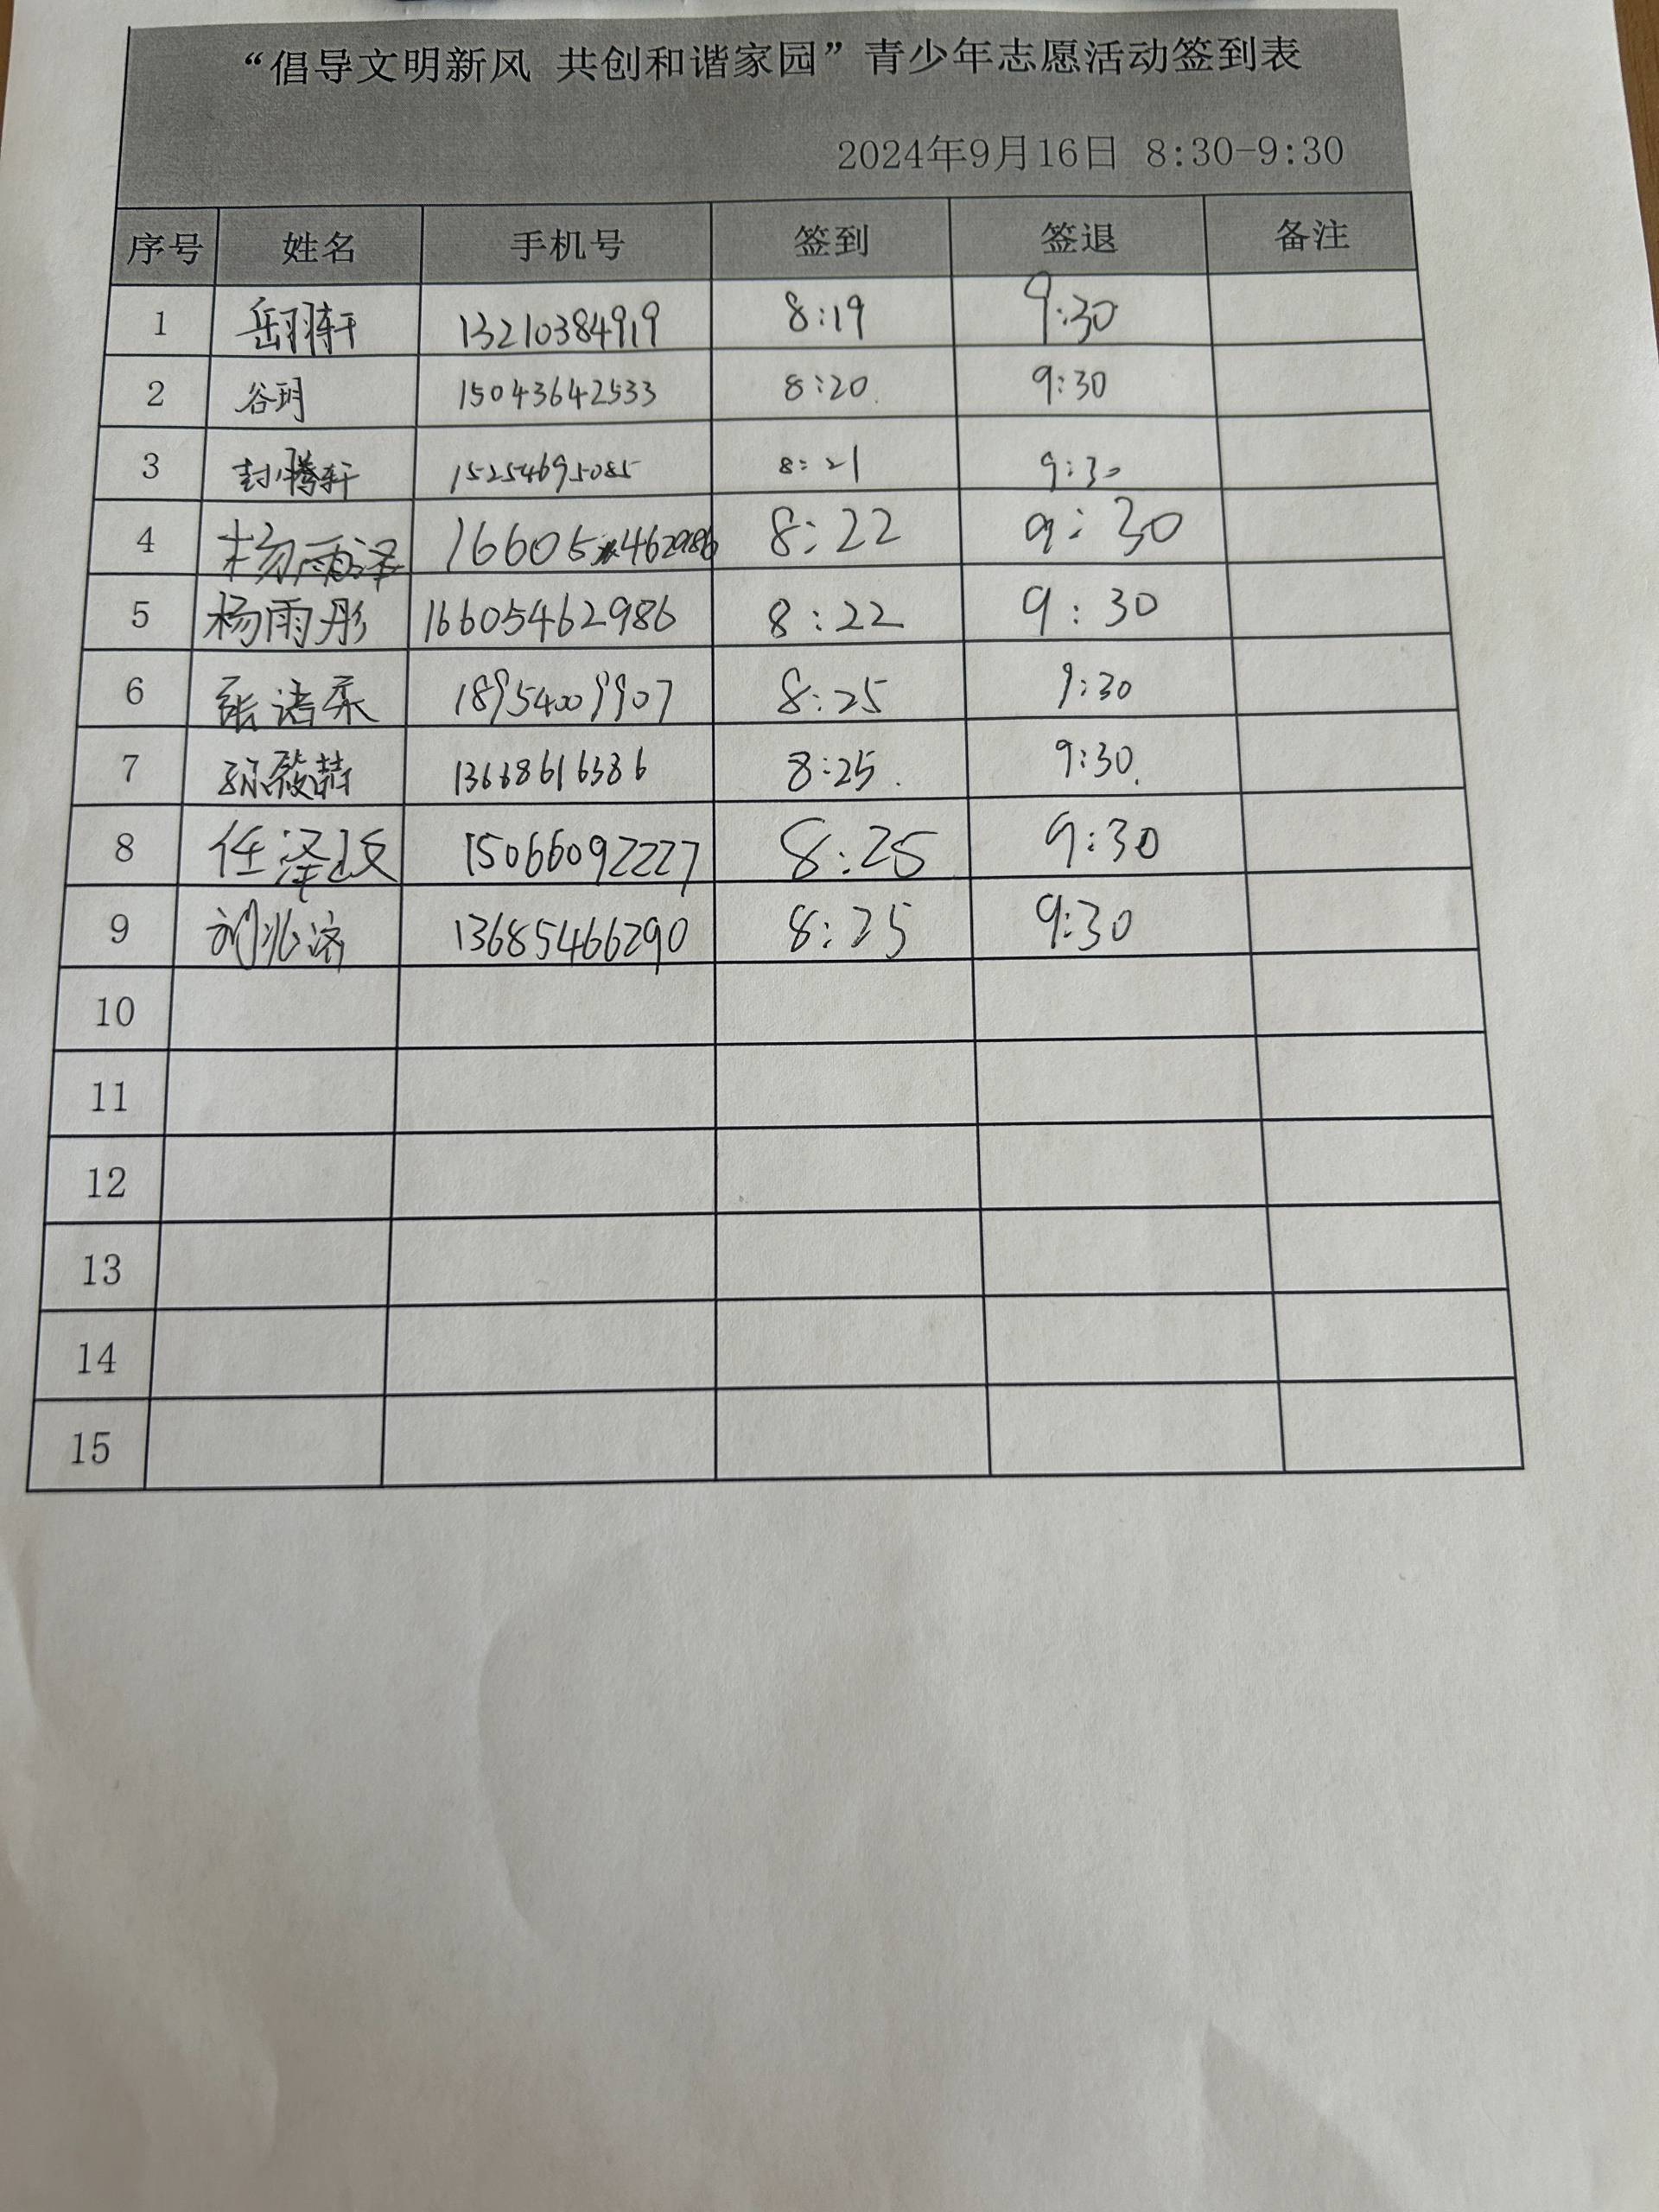 “倡导文明新风 共创和谐家园”青少年志愿活动签到表
2024年9月16日 8:30-9:30
序号 姓名 手机号 签到 签退 备注
1 岳翔轩 13210384919 8:19 9:30
2 谷玥 15043642533 8:20 9:30
3 封腾轩 15254695085 8:21 9:30
4 杨雨泽 16605462986 8:22 9:30
5 杨雨彤 16605462986 8:22 9:30
6 张诸柔 18954009907 8:25 9:30
7 13668616386 8:25 9:30
8 任泽政 15066092227 8:25 9:30
9 刘兆济 13685466290 8:25 9:30
10
11
12
13
14
15